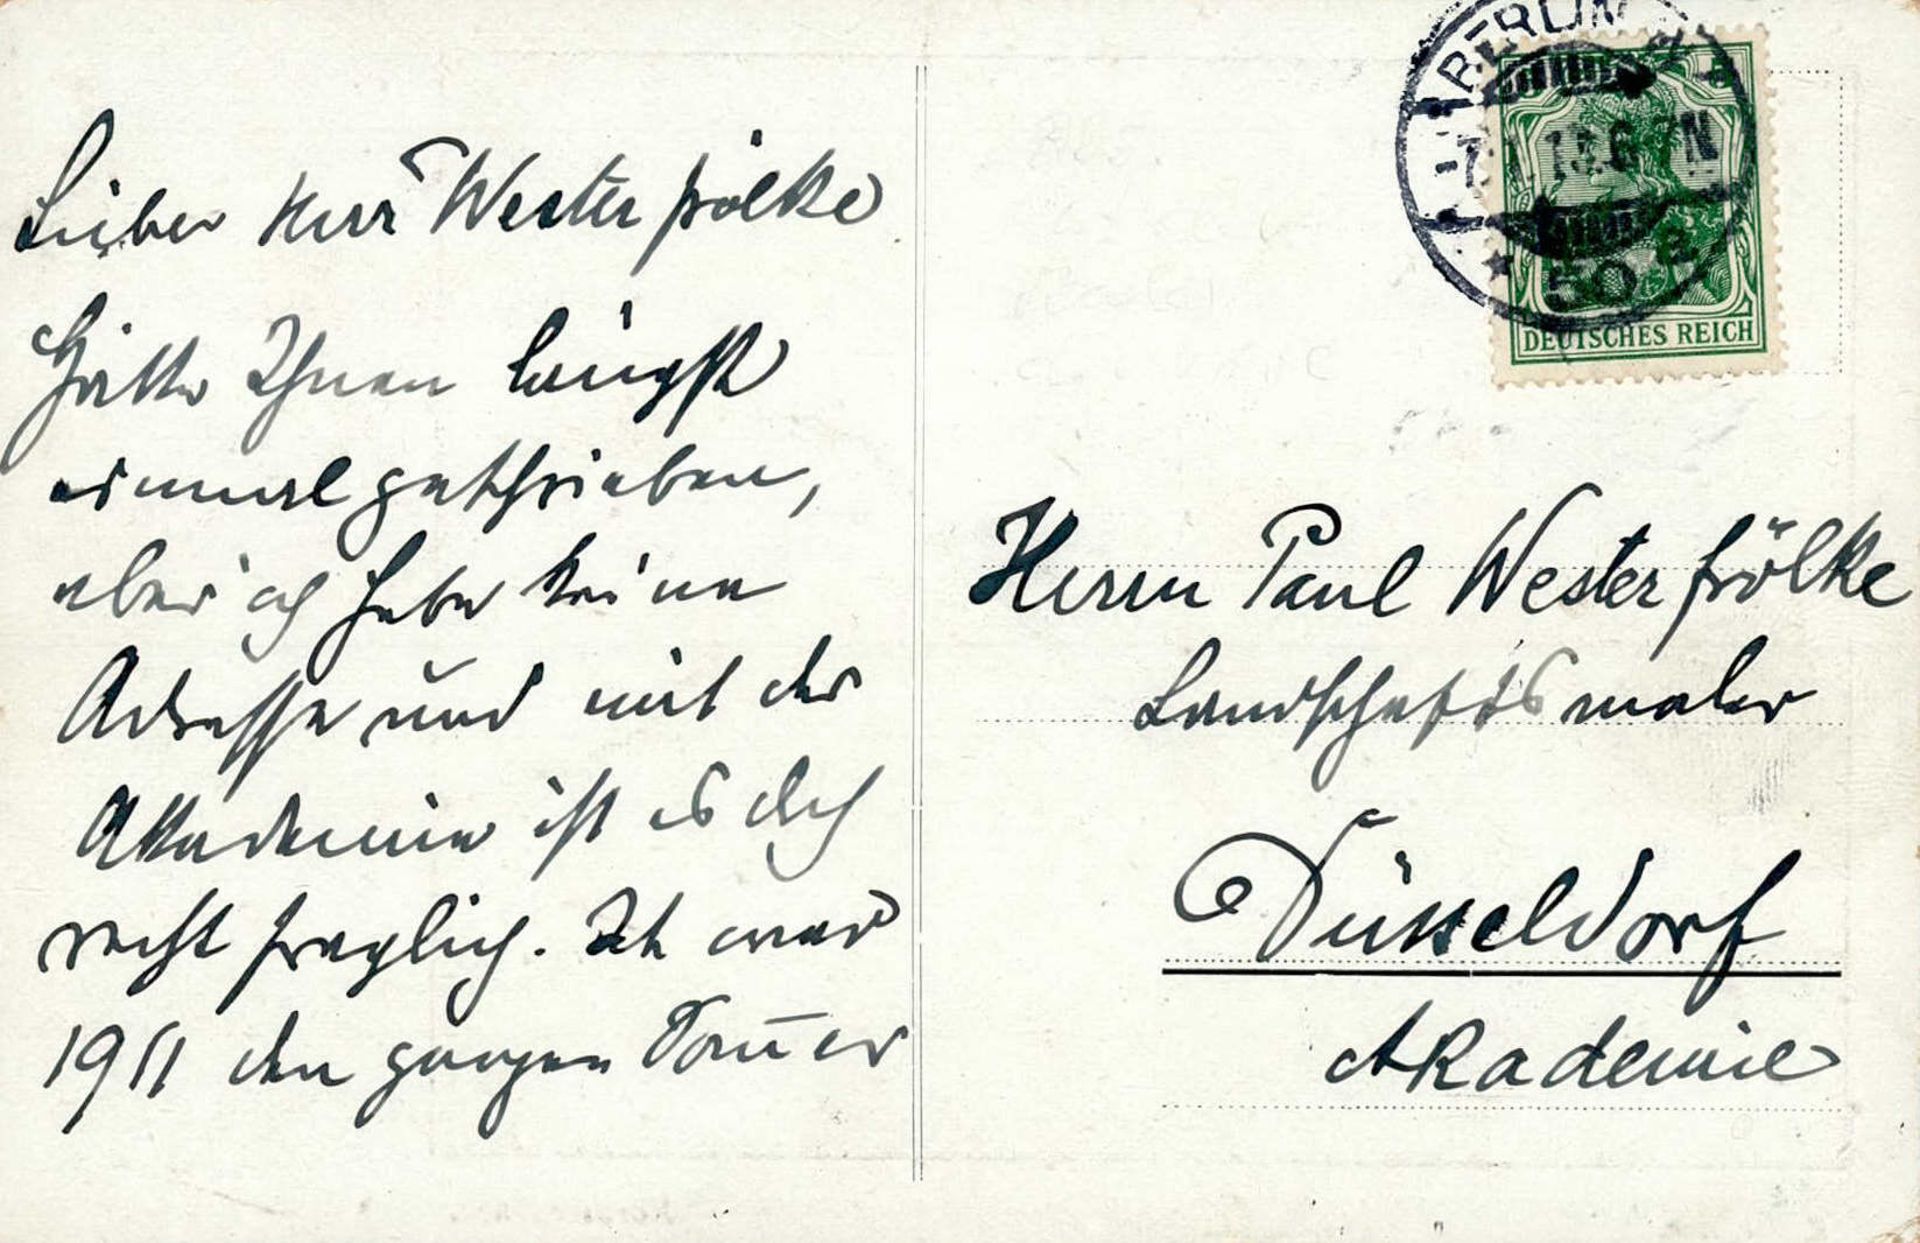 Lieber Herr Westerfrölke
Hätte Ihnen längst
einmal geschrieben,
aber ich habe keine
Adresse und mit der
Akademie ist es doch
recht fraglich. Ich war
1911 den ganzen Som̅er
BERLIN
50 a
DEUTSCHES REICH
Herrn Paul Westerfrölke
Landschaftsmaler
Düsseldorf
Akademie